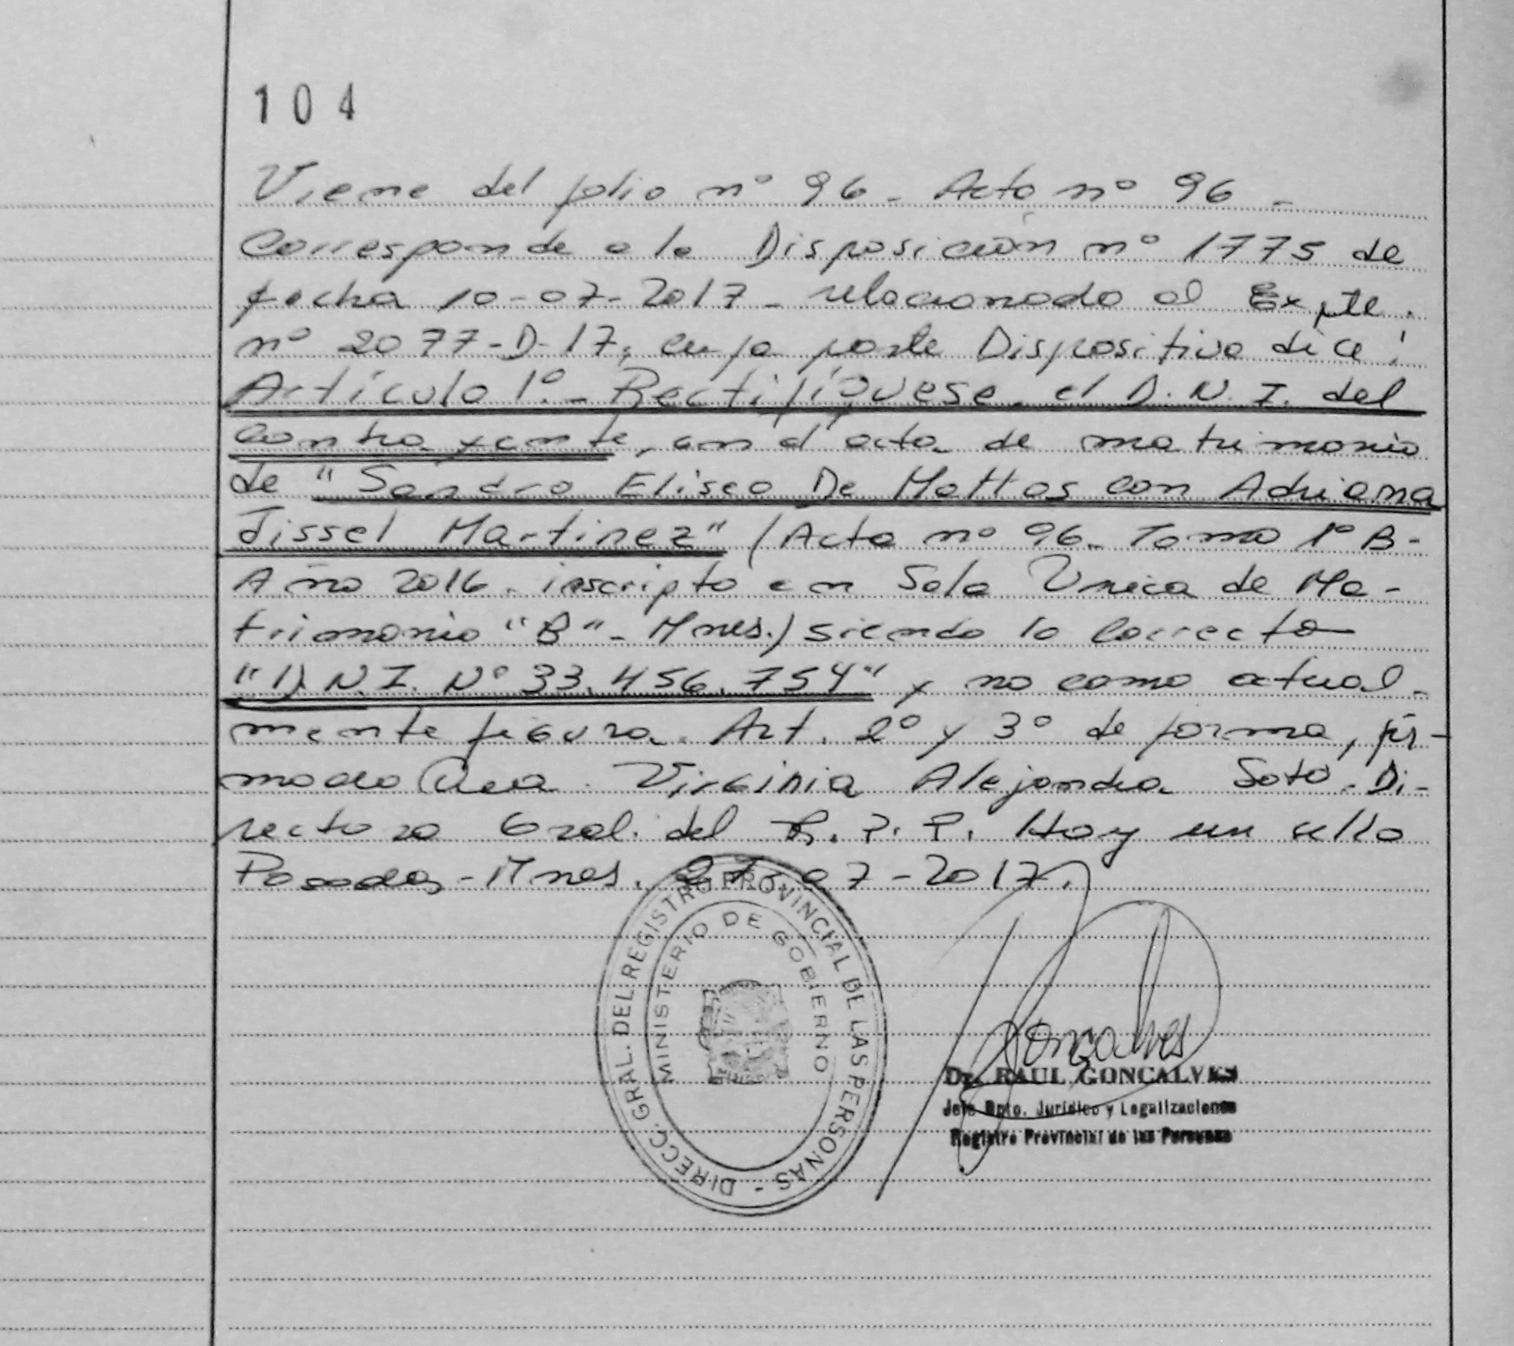 104
Viene del folio nº 96 - Acta nº 96 -
Corresponde a la Disposición nº 1775 de
fecha 10-07-2017 - relacionado al Expte.
nº 2077-D-17, cuya parte Dispositiva dice:
Artículo 1º.- Rectifíquese, el D.N.I. del
contrayente, en el acta de matrimonio
de "Sandro Eliseo De Mattos con Adriana
Jissel Martinez" (Acta nº 96- Tomo 1º B-
Año 2016. inscripto en Sala Unica de Ma-
trimonio "B" - Mnes.) siendo lo correcto
"D.N.I. Nº 33.456.754" y no como actual-
mente figura. Art. 2º y 3º de forma, fir-
mado Virginia Alejandra Soto - Di-
rectora Gral. del R.P.P. Hay un sello
Posadas, - Mnes. 27-07-2017.
DIRECC. GRAL. DEL REGISTRO PROVINCIAL DE LAS PERSONAS -
MINISTERIO DE GOBIERNO
Goncalves
Dr. RAUL GONCALVES
Jefe Dpto. Jurídico y Legalizaciones
Registro Provincial de las Personas